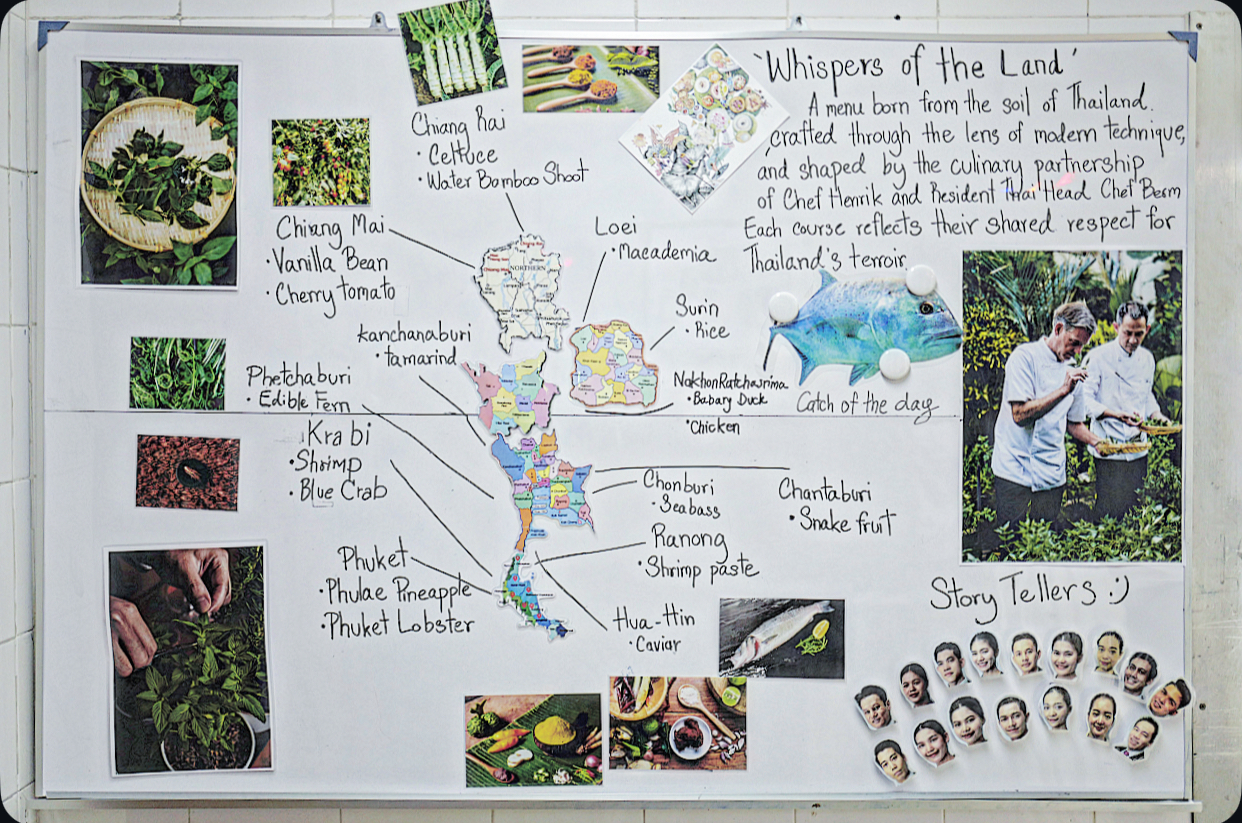 'Whispers of the Land'
A menu born from the soil of Thailand.
crafted through the lens of modern technique,
and shaped by the culinary partnership
of Chef Henrik and Resident Thai Head Chef Berm
Each course reflects their shared respect for
Thailand's terroir
Chiang Rai
• Celtuce
• Water Bamboo Shoot
Chiang Mai
• Vanilla Bean
• Cherry tomato
Loei
• Macademia
NORTHERN
Surin
• Rice
kanchanaburi
• tamarind
Nakhon Ratchasrima
• Babary Duck
• Chicken
Catch of the day
Phetchaburi
• Edible Fern
Krabi
• Shrimp
• Blue Crab
Chonburi
• Seabass
Chantaburi
• Snake fruit
Ranong
• Shrimp paste
Phuket
• Phulae Pineapple
• Phuket Lobster
Hua-Hin
• Caviar
Story Tellers :)